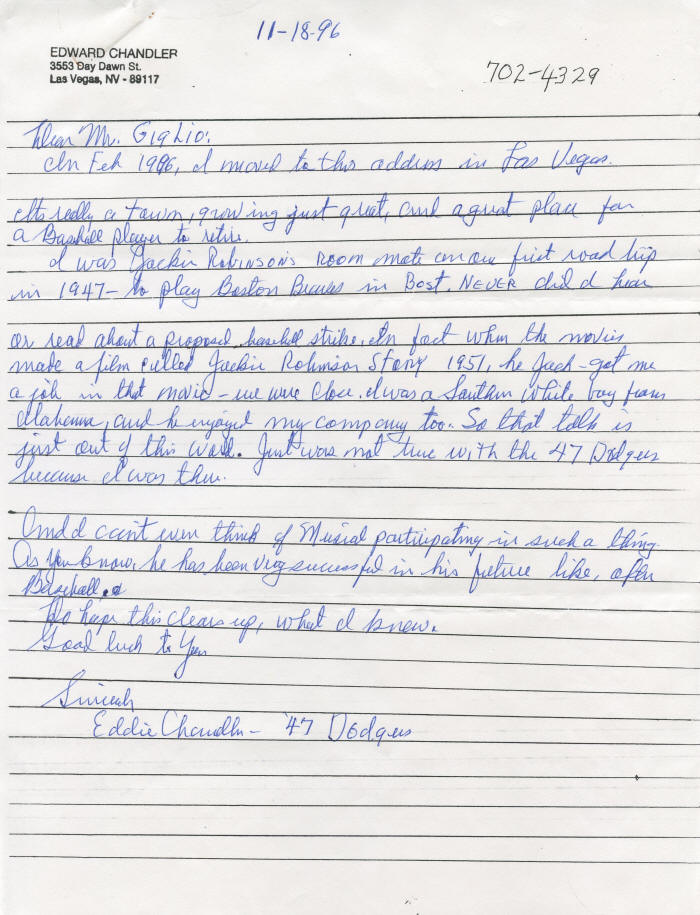 11-18-96
EDWARD CHANDLER
3553 Day Dawn St.
Las Vegas, NV - 89117
702-4329
Dear Mr. Giglio:
In Feb 1996, I moved to this address in Las Vegas.
Its really a town, growing just great, and a great place for
a Baseball player to retire.
I was Jackie Robinson's room mate on our first road trip
in 1947- to play Boston Braves in Bost. NEVER did I hear
or read about a proposed baseball strike. In fact when the movies
made a film called Jackie Robinson Story 1951, he Jack-got me
a job in that movie - we were close. I was a Southern white boy from
Alabama, and he enjoyed my company too. So that talk is
just out of this world. Just was not true with the 47 Dodgers
because I was there.
And I can't even think of Musial participating in such a thing.
As you know, he has been very successful in his future life, after
Baseball.
Do hope this clears up, what I knew.
Good luck to You
Sincerely
Eddie Chandler - '47 Dodgers